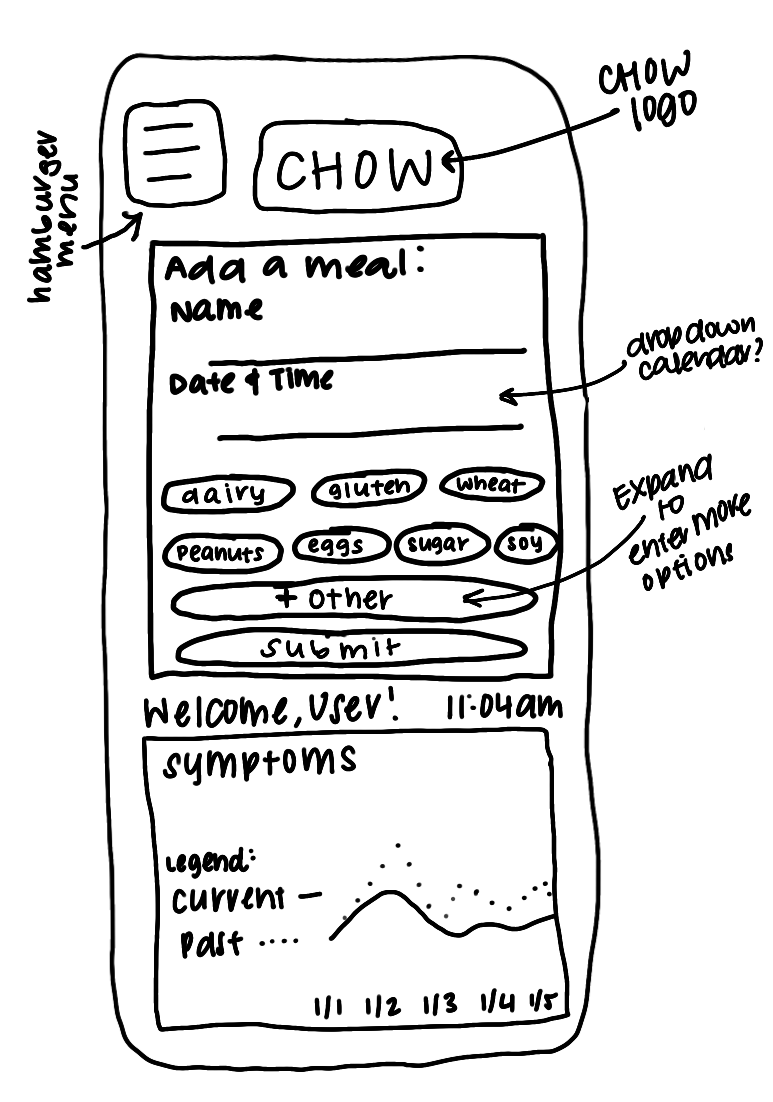 CHOW
logo
hamburger
menu
CHOW
Add a meal:
Name
Date & Time
dropdown
calendar?
dairy gluten wheat
Peanuts eggs sugar soy
+ other
Expand
to
enter more
options
submit
Welcome, User! 11:04am
symptoms
Legend:
current —
past ....
1/1 1/2 1/3 1/4 1/5